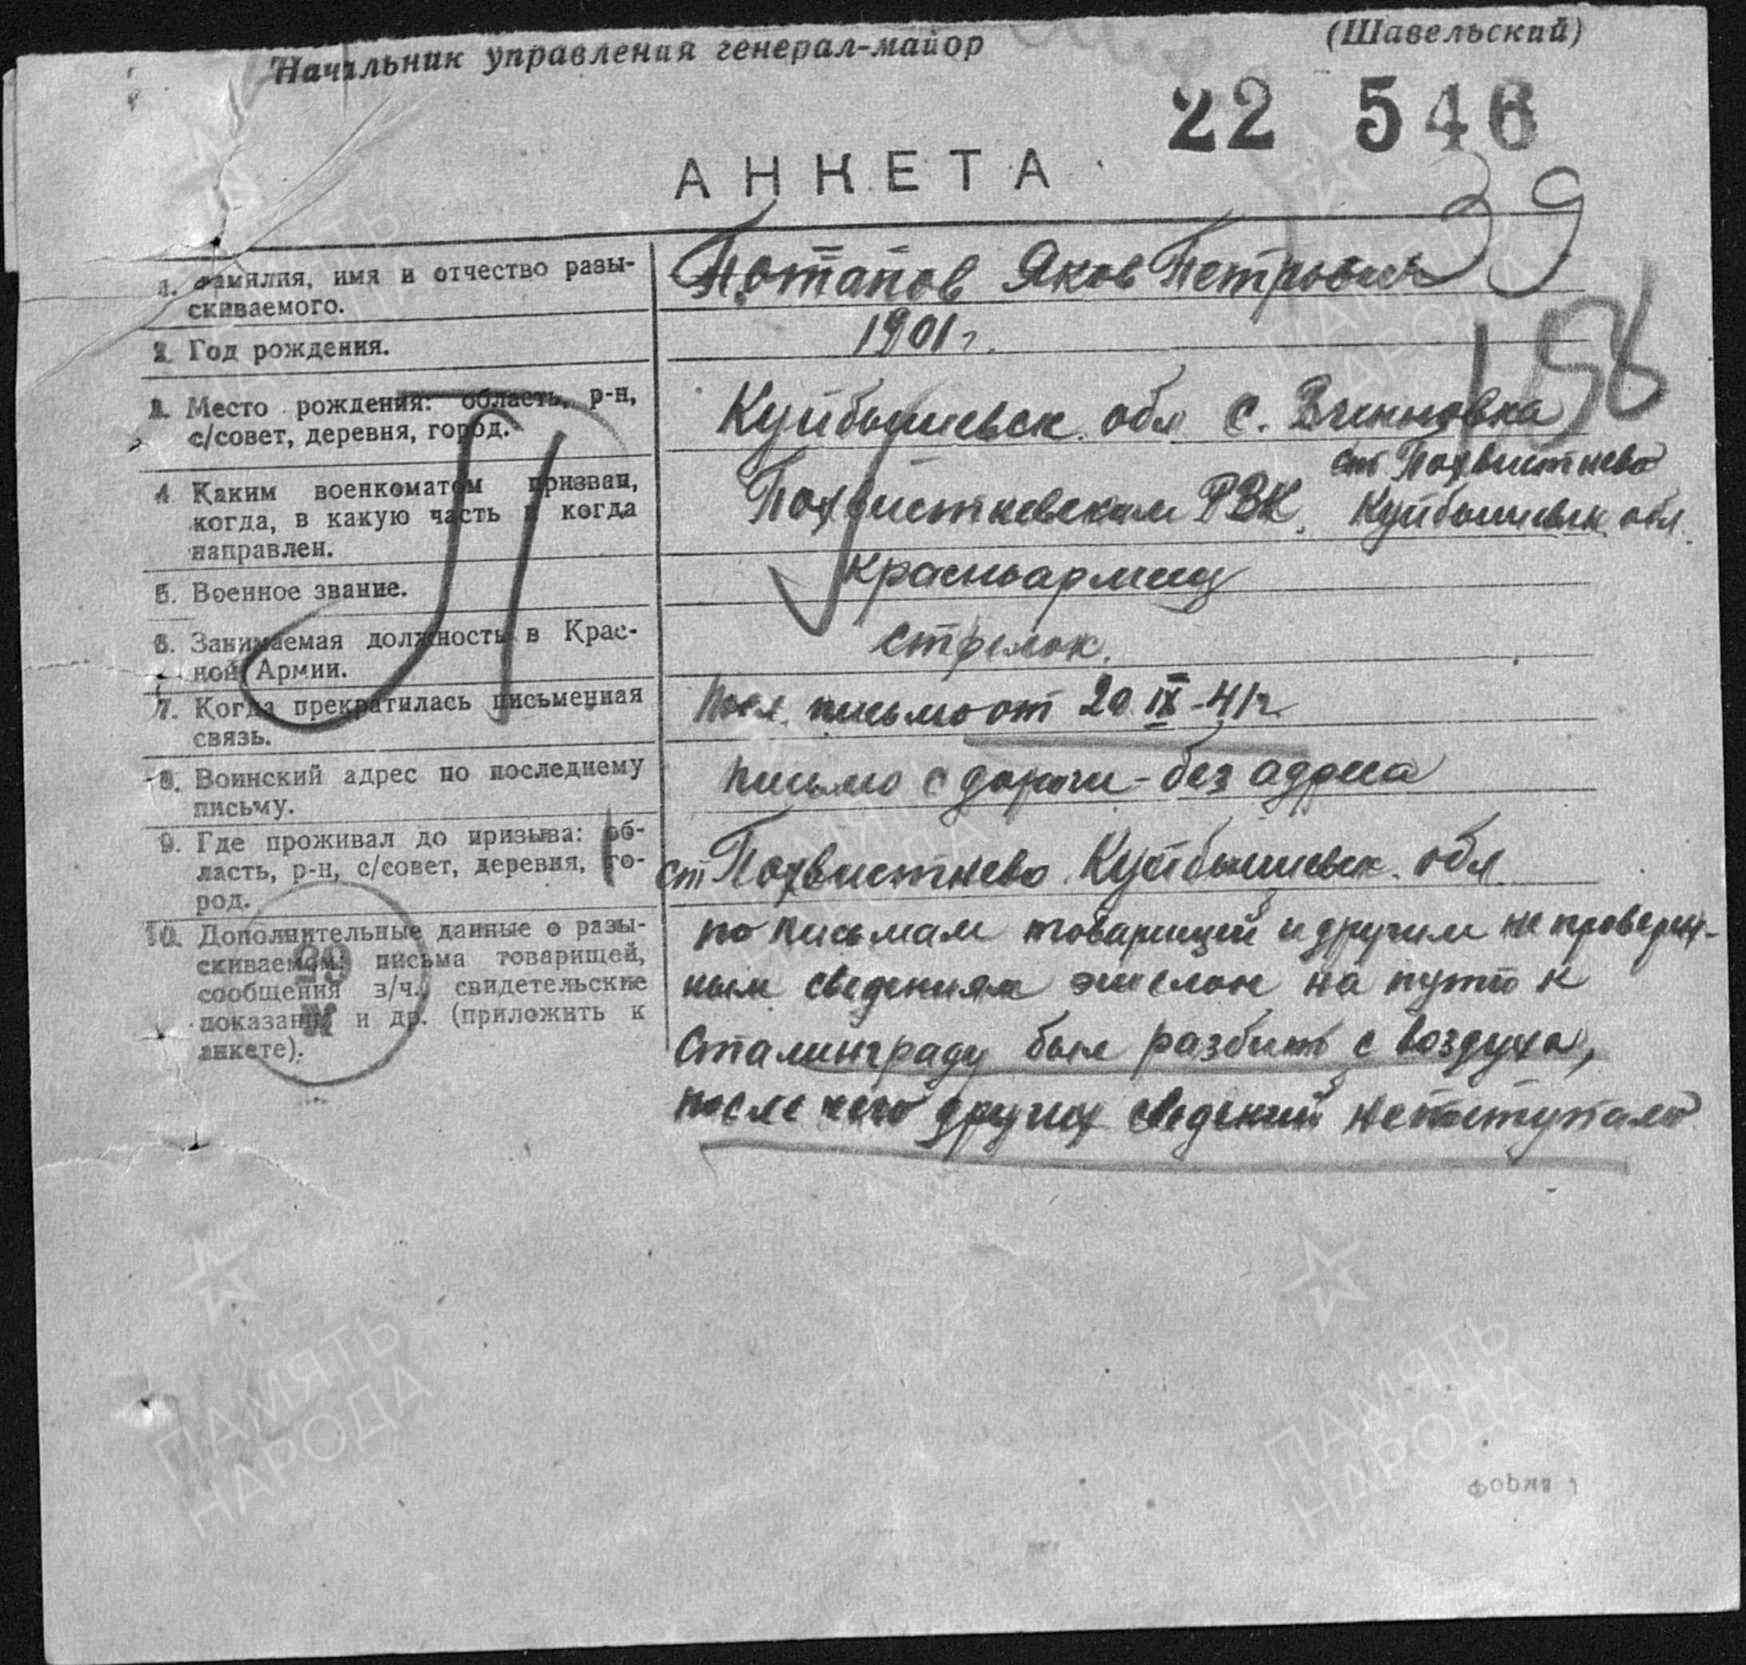 Начальник управления генерал-майор (Шавельский)
22 546
АНКЕТА
39
1. Фамилия, имя и отчество разы-
скиваемого.
Потапов Яков Петрович
2. Год рождения.
1901 г.
158
3. Место рождения: область, р-н,
с/совет, деревня, город.
Куйбышевск. обл с.
ст. Похвистнево
4 Каким военкоматом призван,
когда, в какую часть и когда
направлен.
Похвистневским РВК. Куйбышевск обл.
5. Военное звание.
Красноармеец
6. Занимаемая должность в Крас-
ной Армии.
стрелок.
7. Когда прекратилась письменная
связь.
Посл. письмо от 20 IX-41г.
8. Воинский адрес по последнему
письму.
письмо с дороги - без адреса
9. Где проживал до призыва: об-
ласть, р-н, с/совет, деревня, го-
род.
ст Похвистнево Куйбышевск. обл
10. Дополнительные данные о разы-
скиваемом: письма товарищей,
сообщения в/ч., свидетельские
показания и др. (приложить к
анкете).
по письмам товарищей и другим не проверен-
ным сведениям эшелон на пути к
Сталинграду был разбит с воздуха,
после чего других сведений не поступало
39
ПАМЯТЬ
НАРОДА
ПАМЯТЬ
НАРОДА